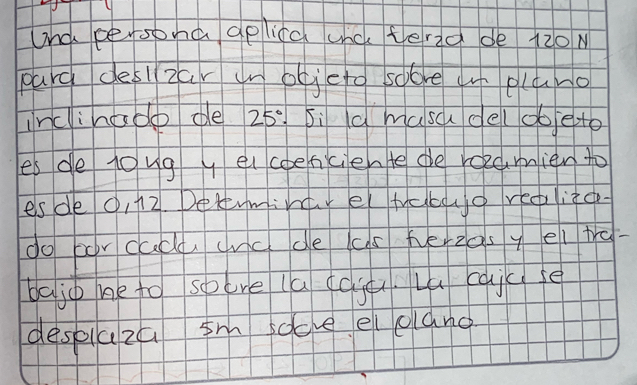 Una persona aplica una fuerza de 120 N
para deslizar un objeto sobre un plano
inclinado de 25°. Si la masa del objeto
es de 10 kg y el coeficiente de rozamiento
es de 0,12 Determinar el trabajo realiza-
do por cada una de las fuerzas y el tra-
bajo neto sobre la caja. La caja se
desplaza 5m sobre el plano